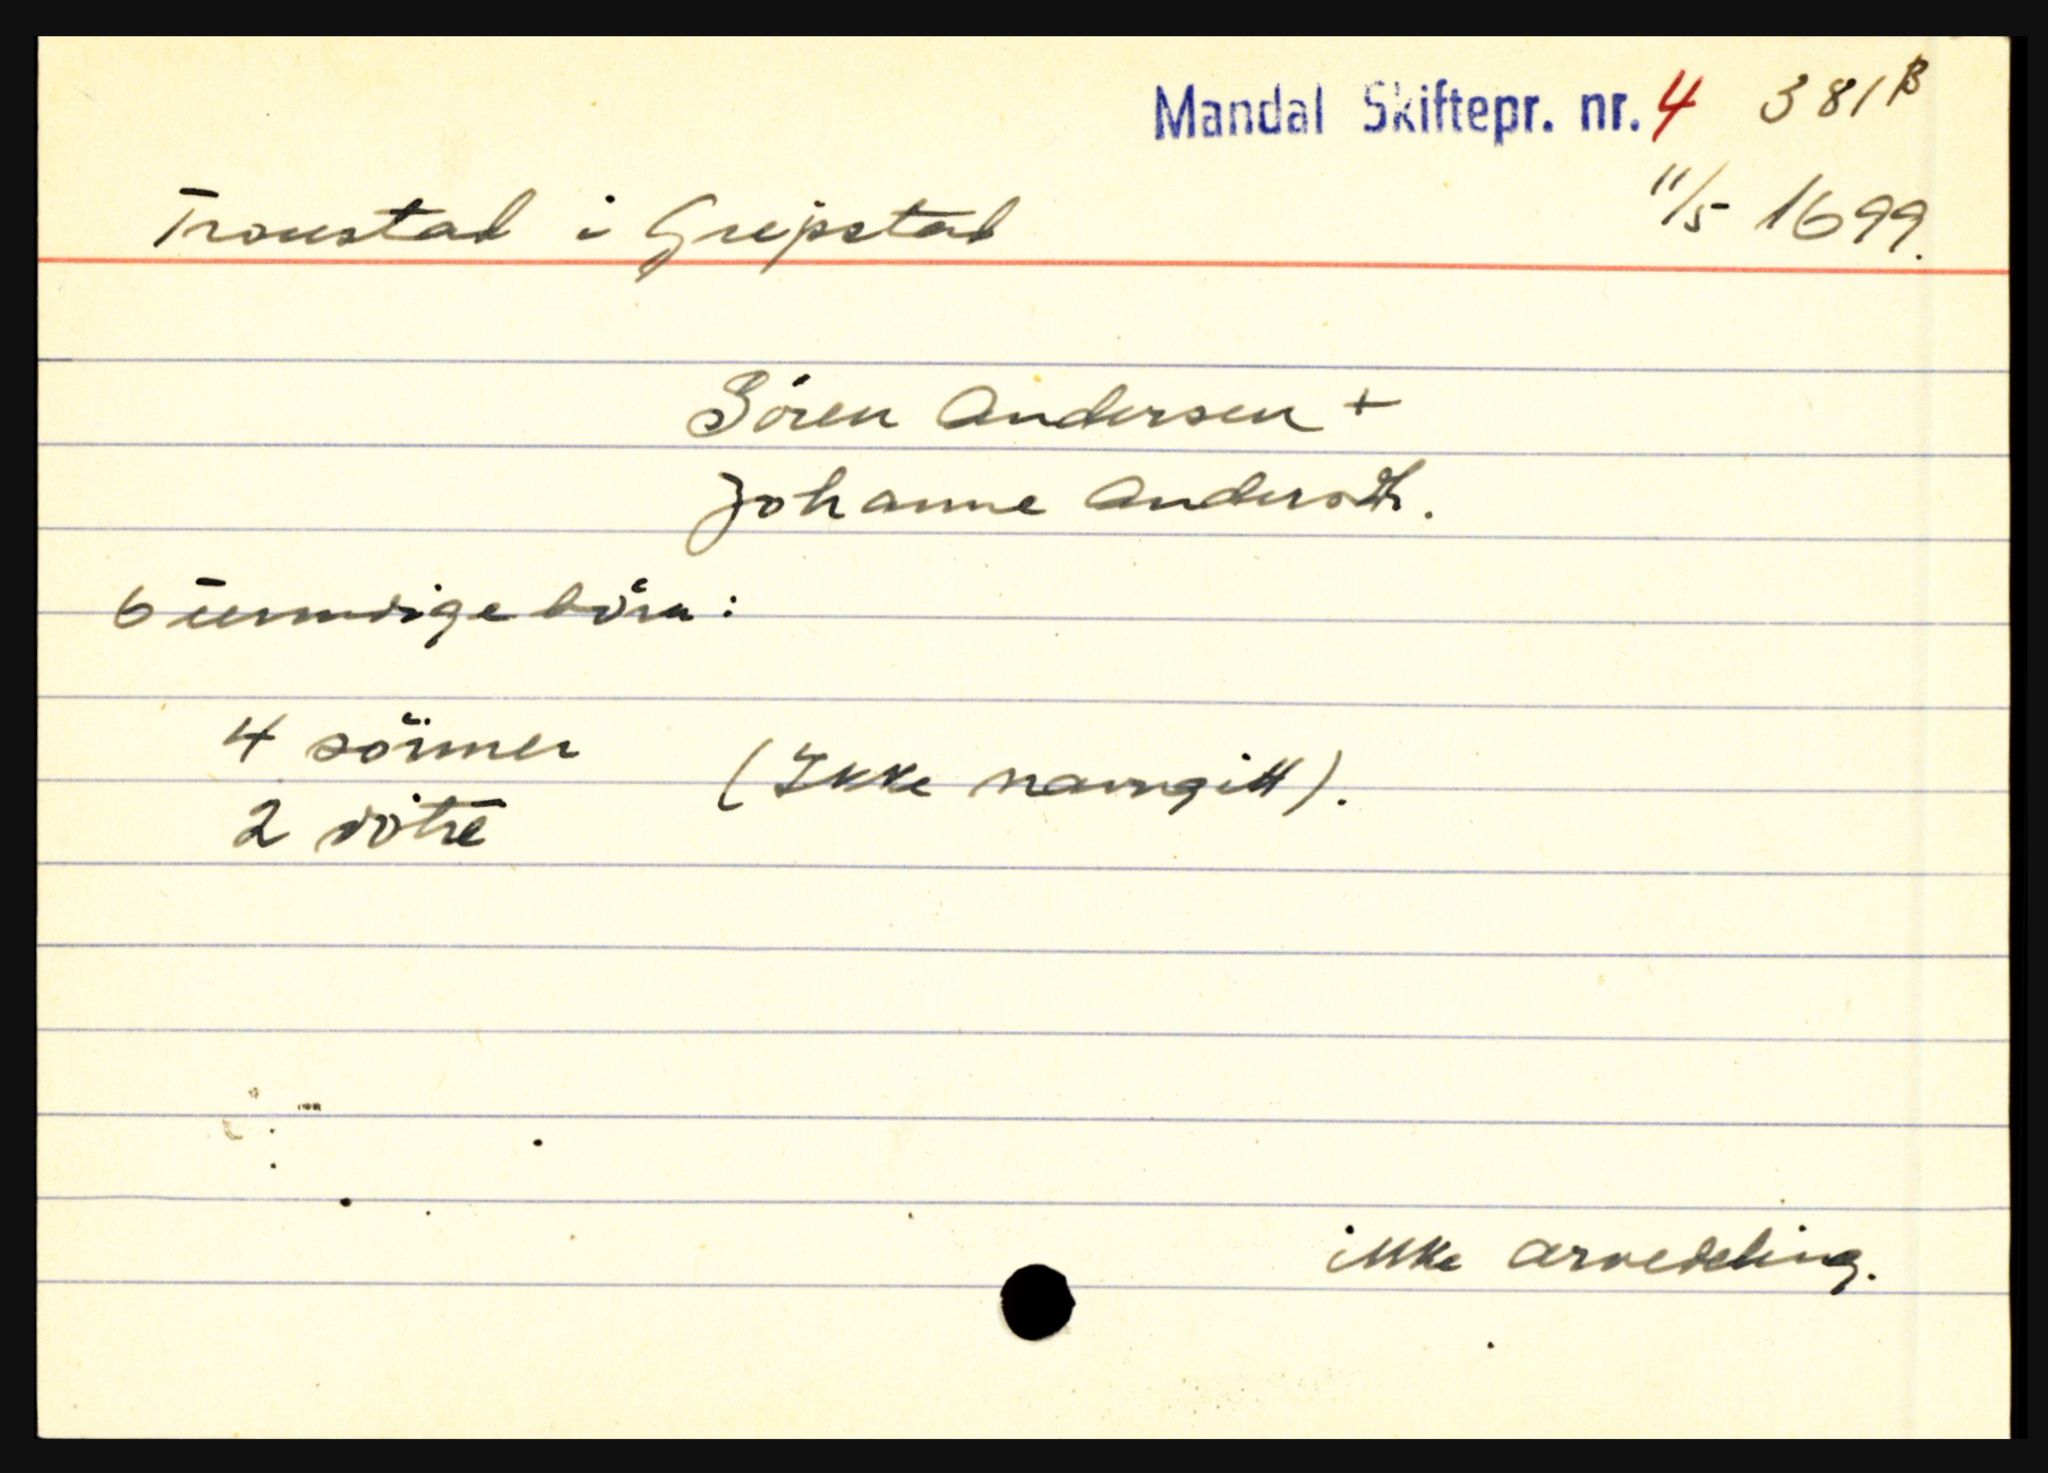 Mandal Skiftepr. nr. 4 381 B
11/5 1699.
Tronstad i Greipstad
Sören Andersen +
Johanne Andersdtr.
6 umndige börn:
4 sönner
2 dötre
(Ikke navngitt).
ikke arvedeling.